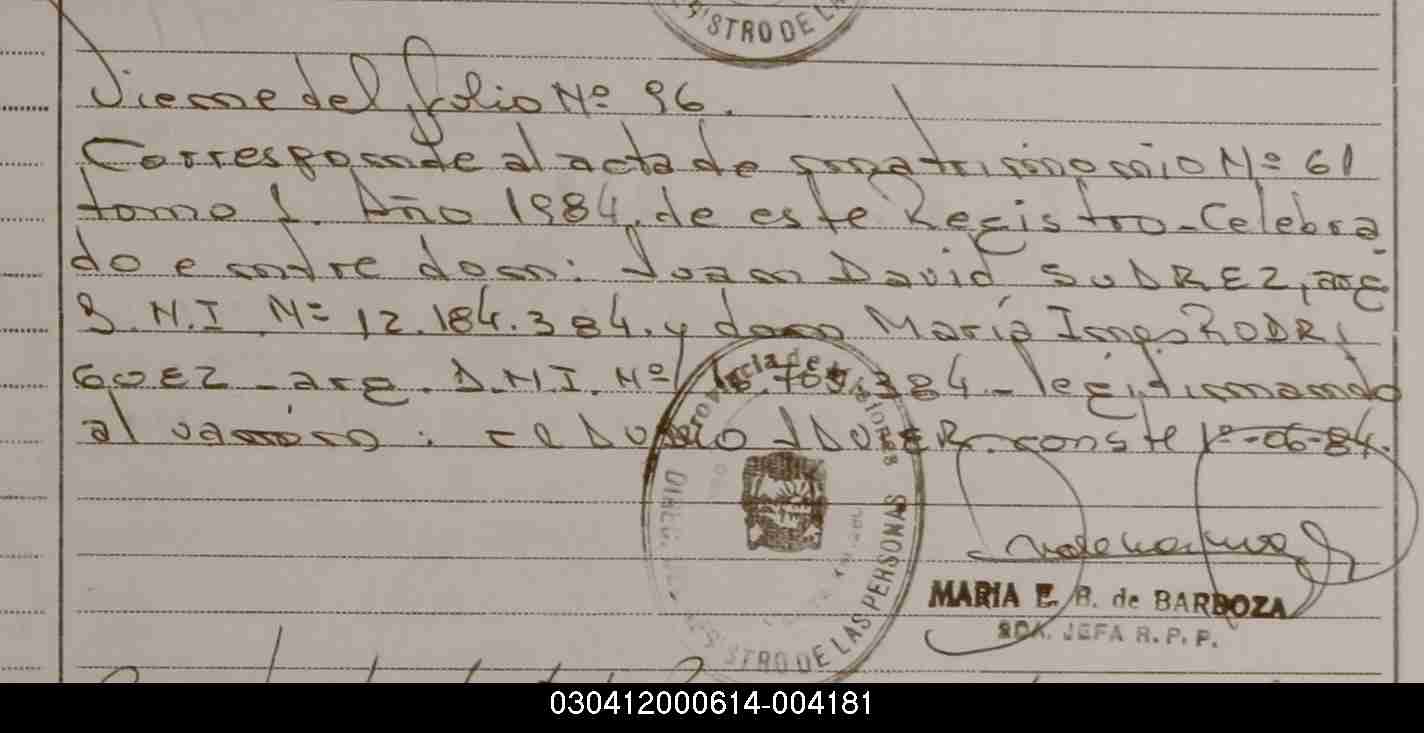 ISTRO DE LA
Viene del folio Nº 96.
Corresponde al acta de matrimonio Nº 61
tomo 1. Año 1984. de este Registro - Celebra
do entre don: Juan David SUAREZ, arg
D.N.I. Nº 12.184.384. y doña María Ines RODRI
GUEZ - arg. D.N.I. Nº 384 - legitimando
al varón: CLAUDIO JAVIER. conste 1º-06-84.
REGISTRO DE LAS PERSONAS
MARIA E. B. de BARBOZA
2DA. JEFA R. P. P.
030412000614-004181